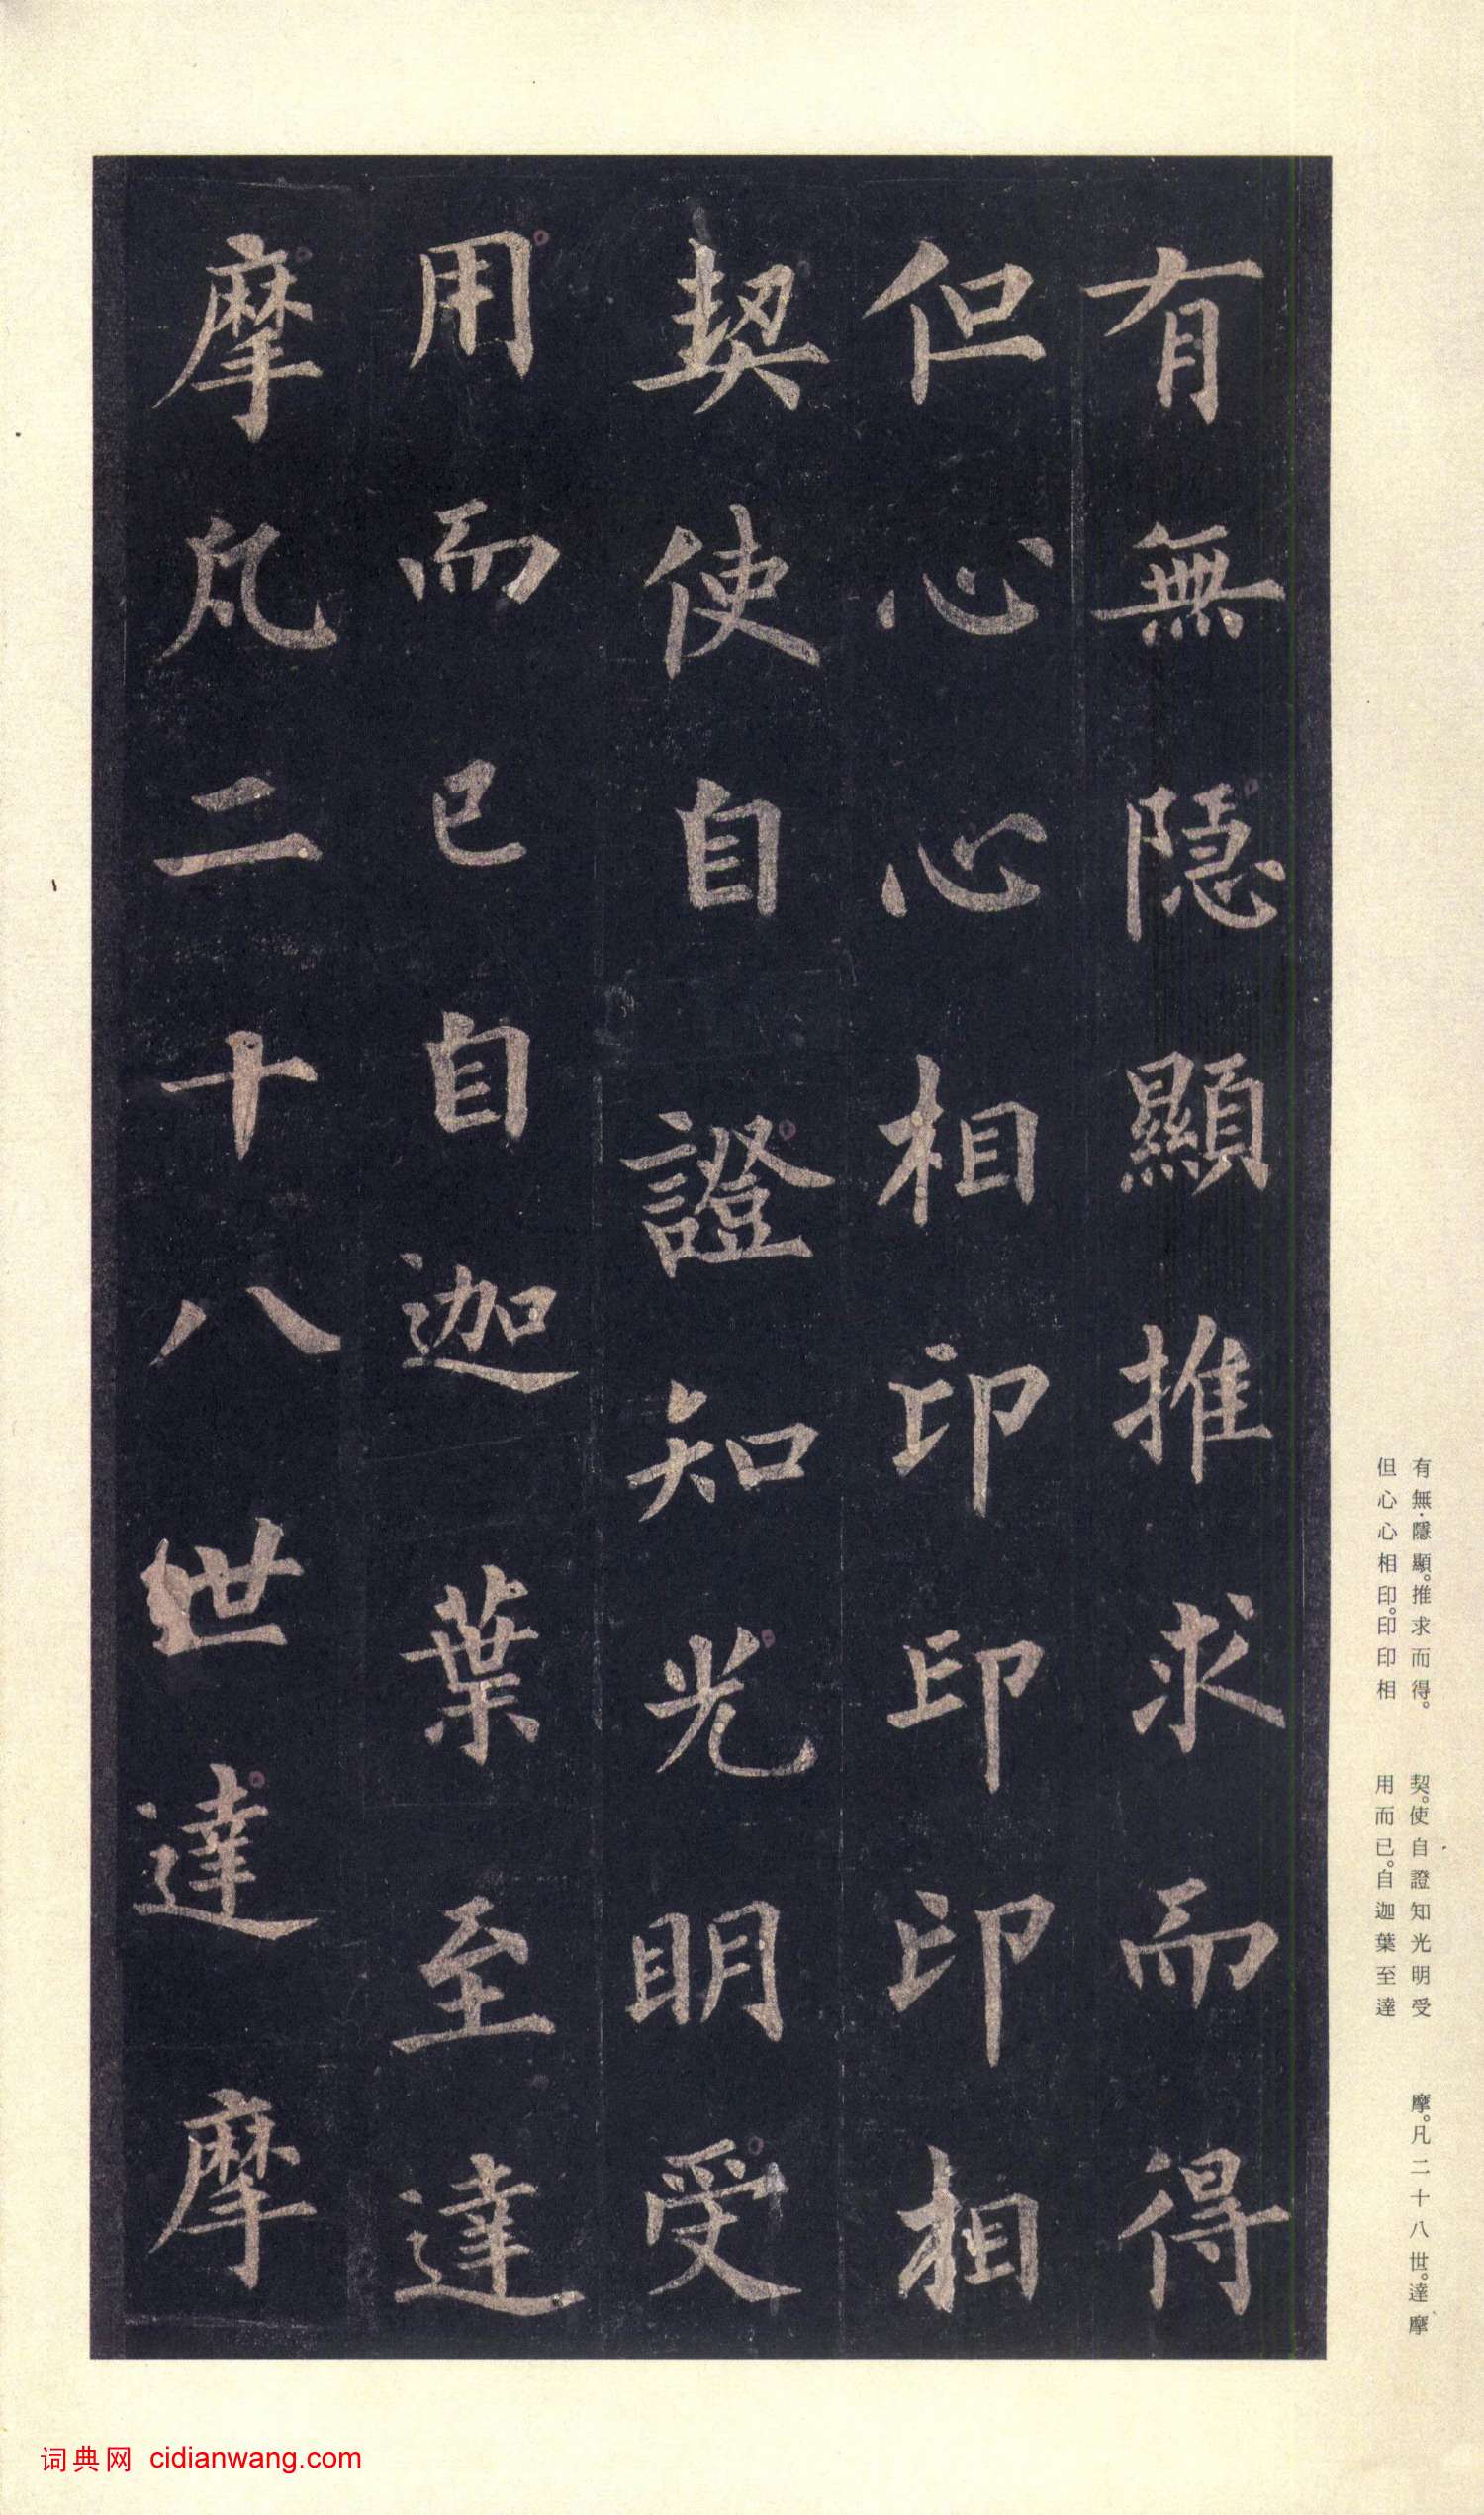 有無隱顯推求而得
但心心相印印印相
契使自證知光明受
用而已自迦葉至達
摩凡二十八世達摩
有無·隱顯。推求而得。
但心心相印。印印相
契。使自證知光明受
用而已。自迦葉至達
摩。凡二十八世。達摩
词典网 cidianwang.com